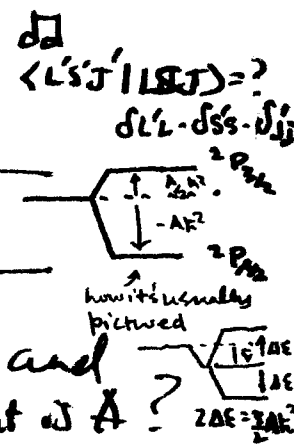 ⟨L'S'J'|LSJ⟩=?
δL'L·δS'S·δJ'J
²P₃/₂
A/2 ħ²
-Aħ²
²P₁/₂
how it's usually
pictured
and
ΔE
ΔE
of A ?
2ΔE = 3/2 Aħ²